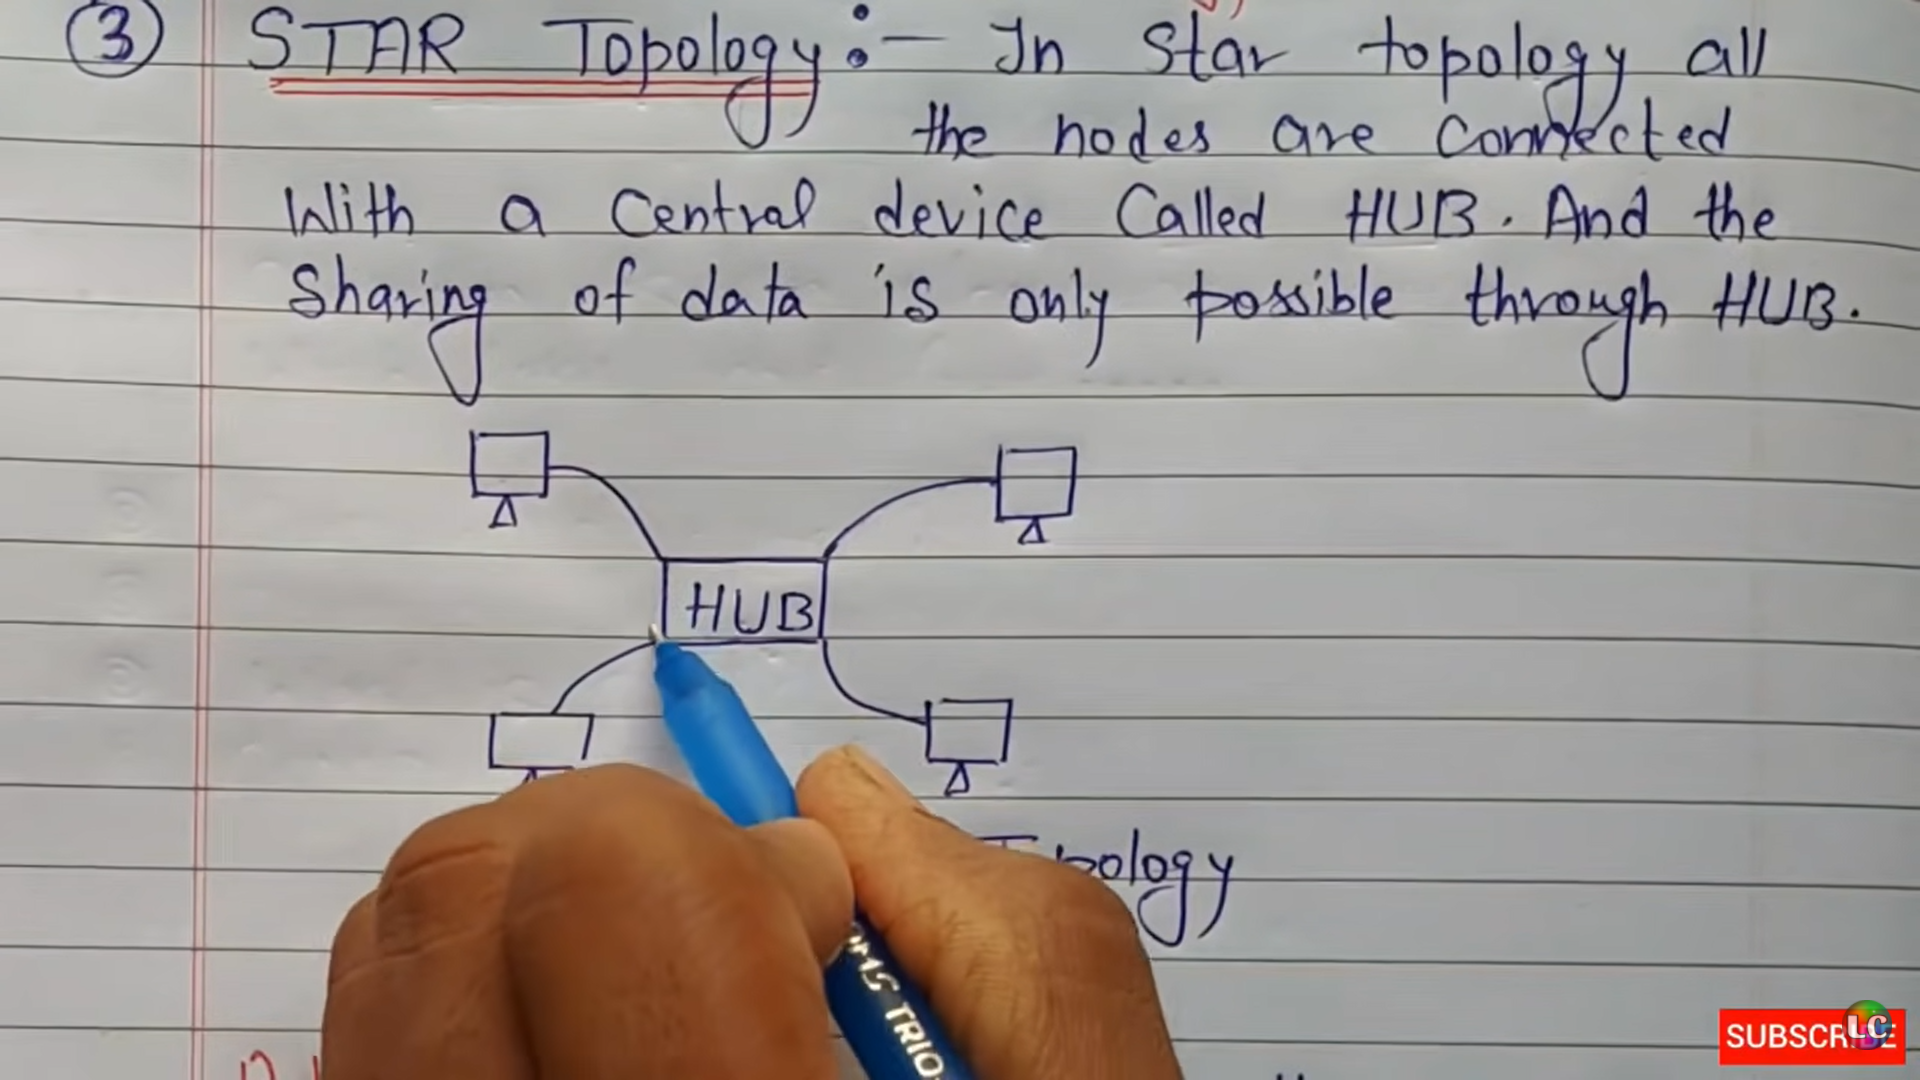 ③ STAR Topology :- In Star topology all
the nodes are connected
With a Central device Called HUB. And the
Sharing of data is only possible through HUB.
HUB
Topology
TRIO
SUBSCRIBE
LC